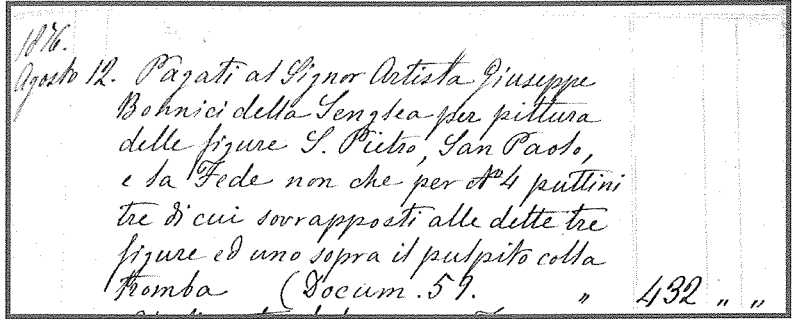 1876.
Agosto 12. Pagati al Signor Artista Giuseppe
Bonnici della Senglea per pittura
delle figure S. Pietro, San Paolo,
e la Fede non che per No 4 puttini
tre di cui sovrapposti alle dette tre
figure ed uno sopra il pulpito colla
tromba (Docum. 59. " 432 " "